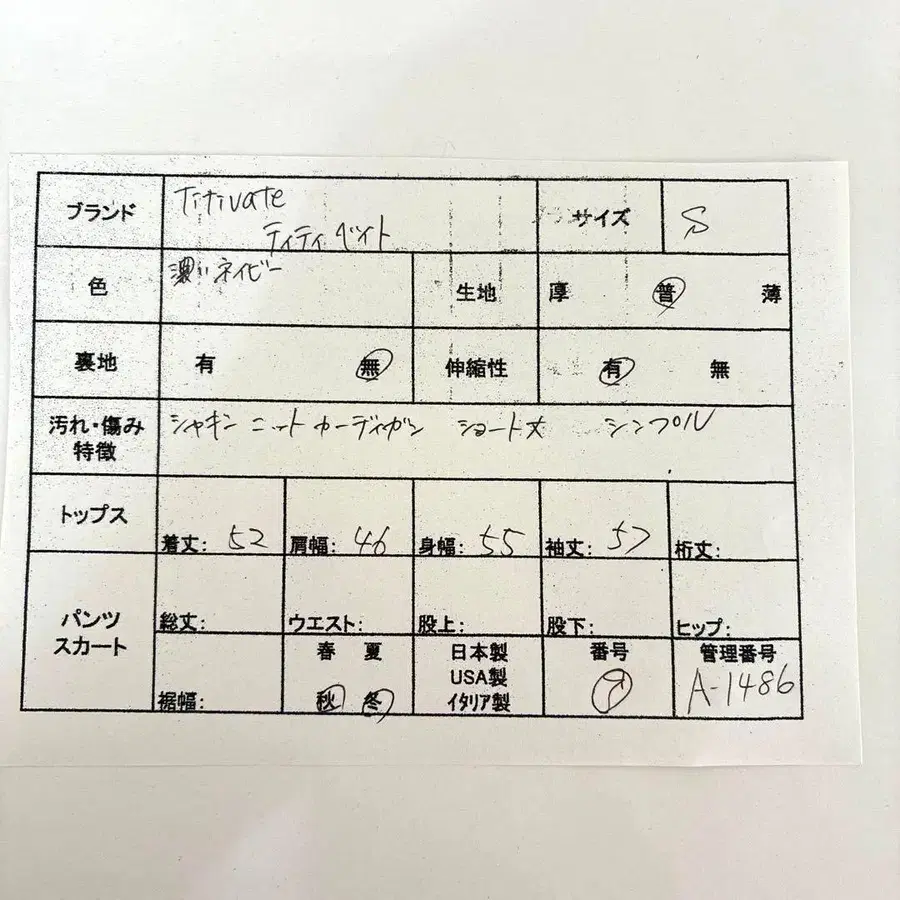 ブランド Titivate サイズ S
ティティベイト
色 濃いネイビー 生地 厚 普 薄
裏地 有 無 伸縮性 有 無
汚れ・傷み シャキン ニット カーディガン ショート丈 シンプル
特徴
トップス 着丈: 52 肩幅: 46 身幅: 55 袖丈: 57 裄丈:
パンツ 総丈: ウエスト: 股上: 股下: ヒップ:
スカート 春 夏 日本製 番号 管理番号
USA製 A-1486
裾幅: 秋 冬 イタリア製